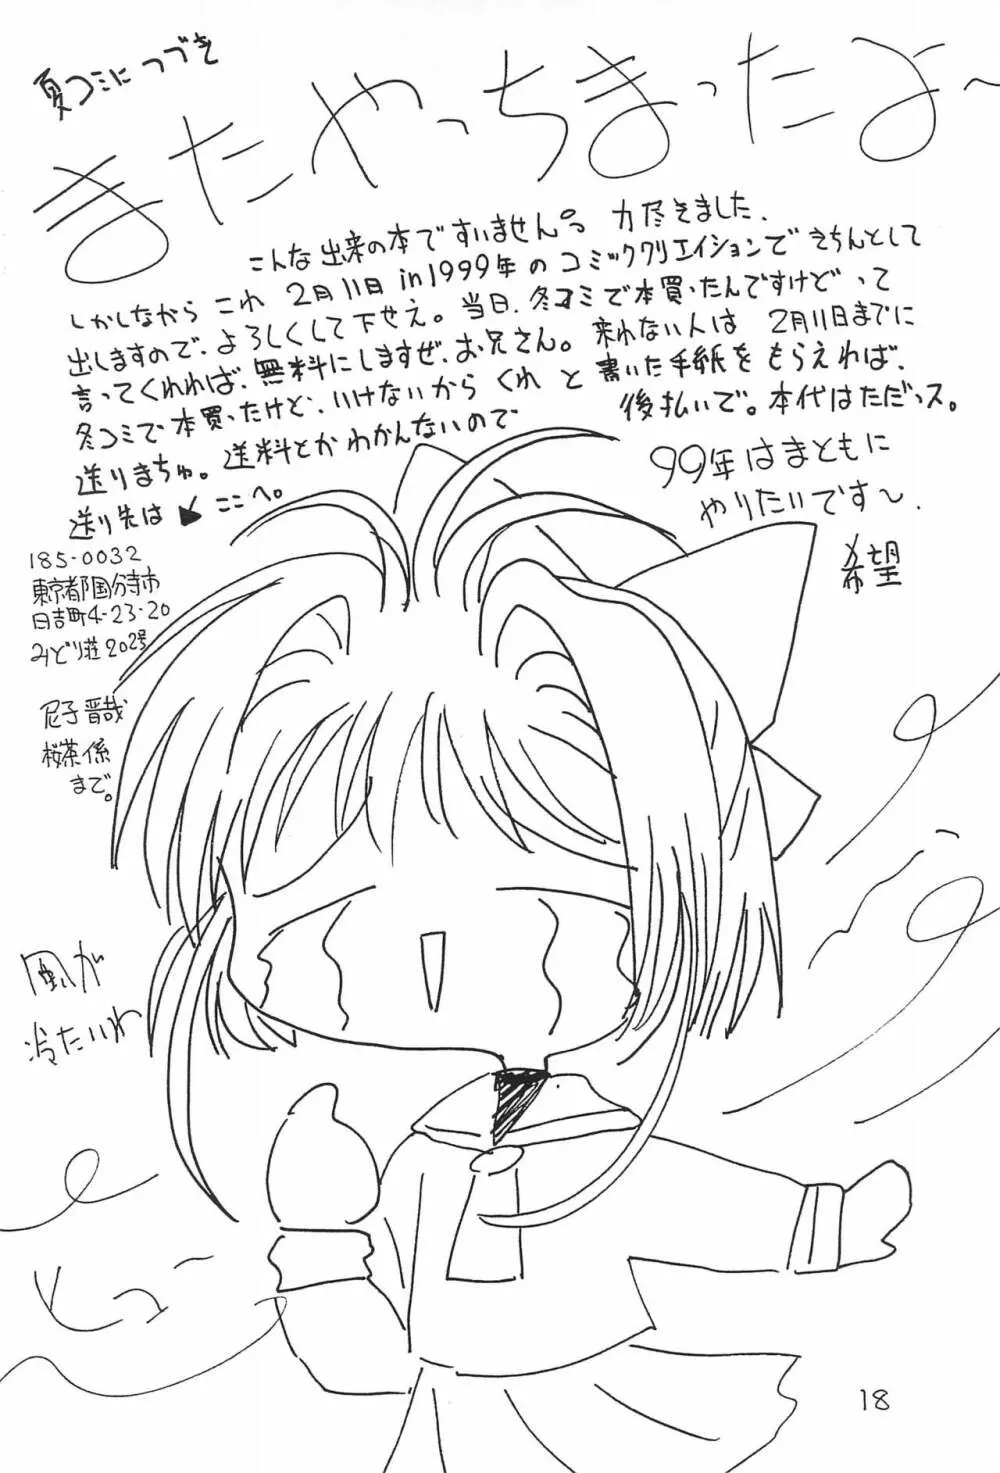 夏コミにつづき
またやっちまったよ〜
こんな出来の本ですいません。力尽きました.
しかしながら これ 2月11日 in 1999年のコミッククリエイションできちんとして
出しますので、よろしくして下せえ。当日、冬コミで本買ったんですけどって
言ってくれれば、無料にしますぜ、お兄さん。来れない人は 2月11日までに
冬コミで本買ったけど、いけないから くれ と書いた手紙をもらえれば、
送りまちゅ。送料とかわかんないので 後払いで。本代はただっス。
送り先は ここへ。
185-0032
東京都国分寺市
日吉町4-23-20
みどり荘202号
尼子晋哉
桜茶係
まで。
99年はまともに
やりたいです〜.
希望
風が
冷たいわ
ヒュー
18